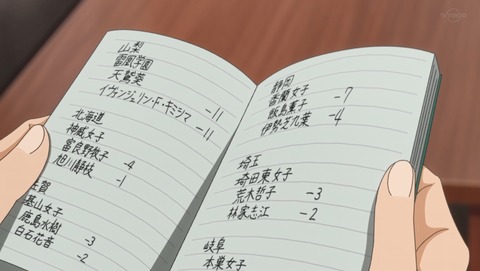 山梨
雷風学園
天鷲葵
イヴァンジェリン・F・キミシマ -11
-11
北海道
神威女子
富良野牧子 -4
旭川静枝 -1
佐賀
基山女子
鹿島水樹 -3
白石花音 -2
静岡
香蘭女子 -7
飯島薫子 -4
伊勢芝乃葉
埼玉
埼田東女子
荒木哲子 -3
林家志江 -2
岐阜
本巣女子